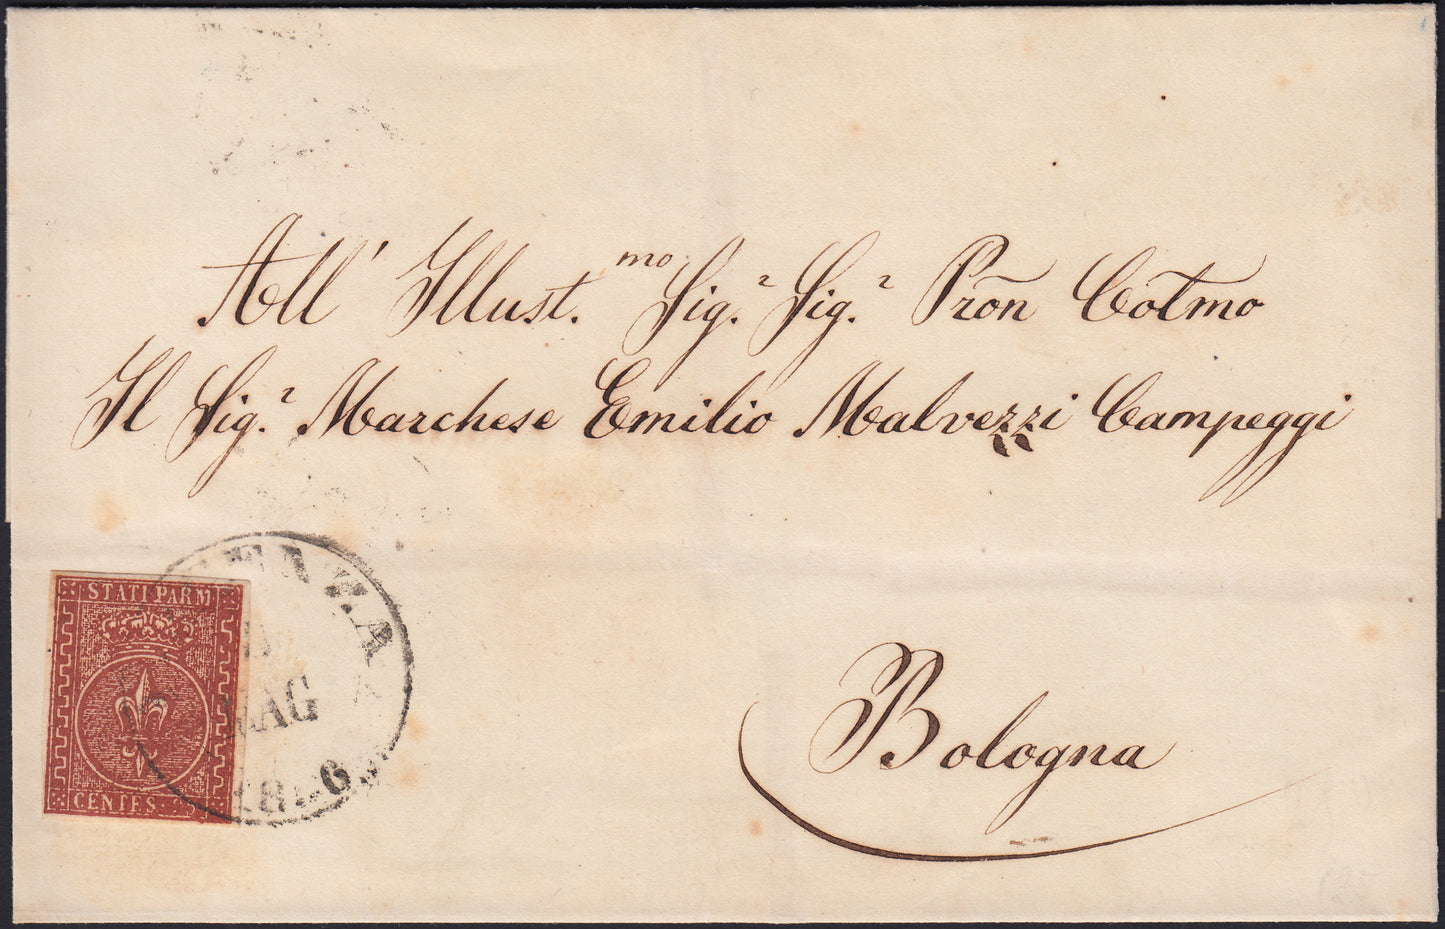 All' Illust.mo Sig.r Sig.r Prõn Cotmo
Il Sig.r Marchese Emilio Malvezzi Campeggi
Bologna
STATI PARM
CENTES. 25
MAG